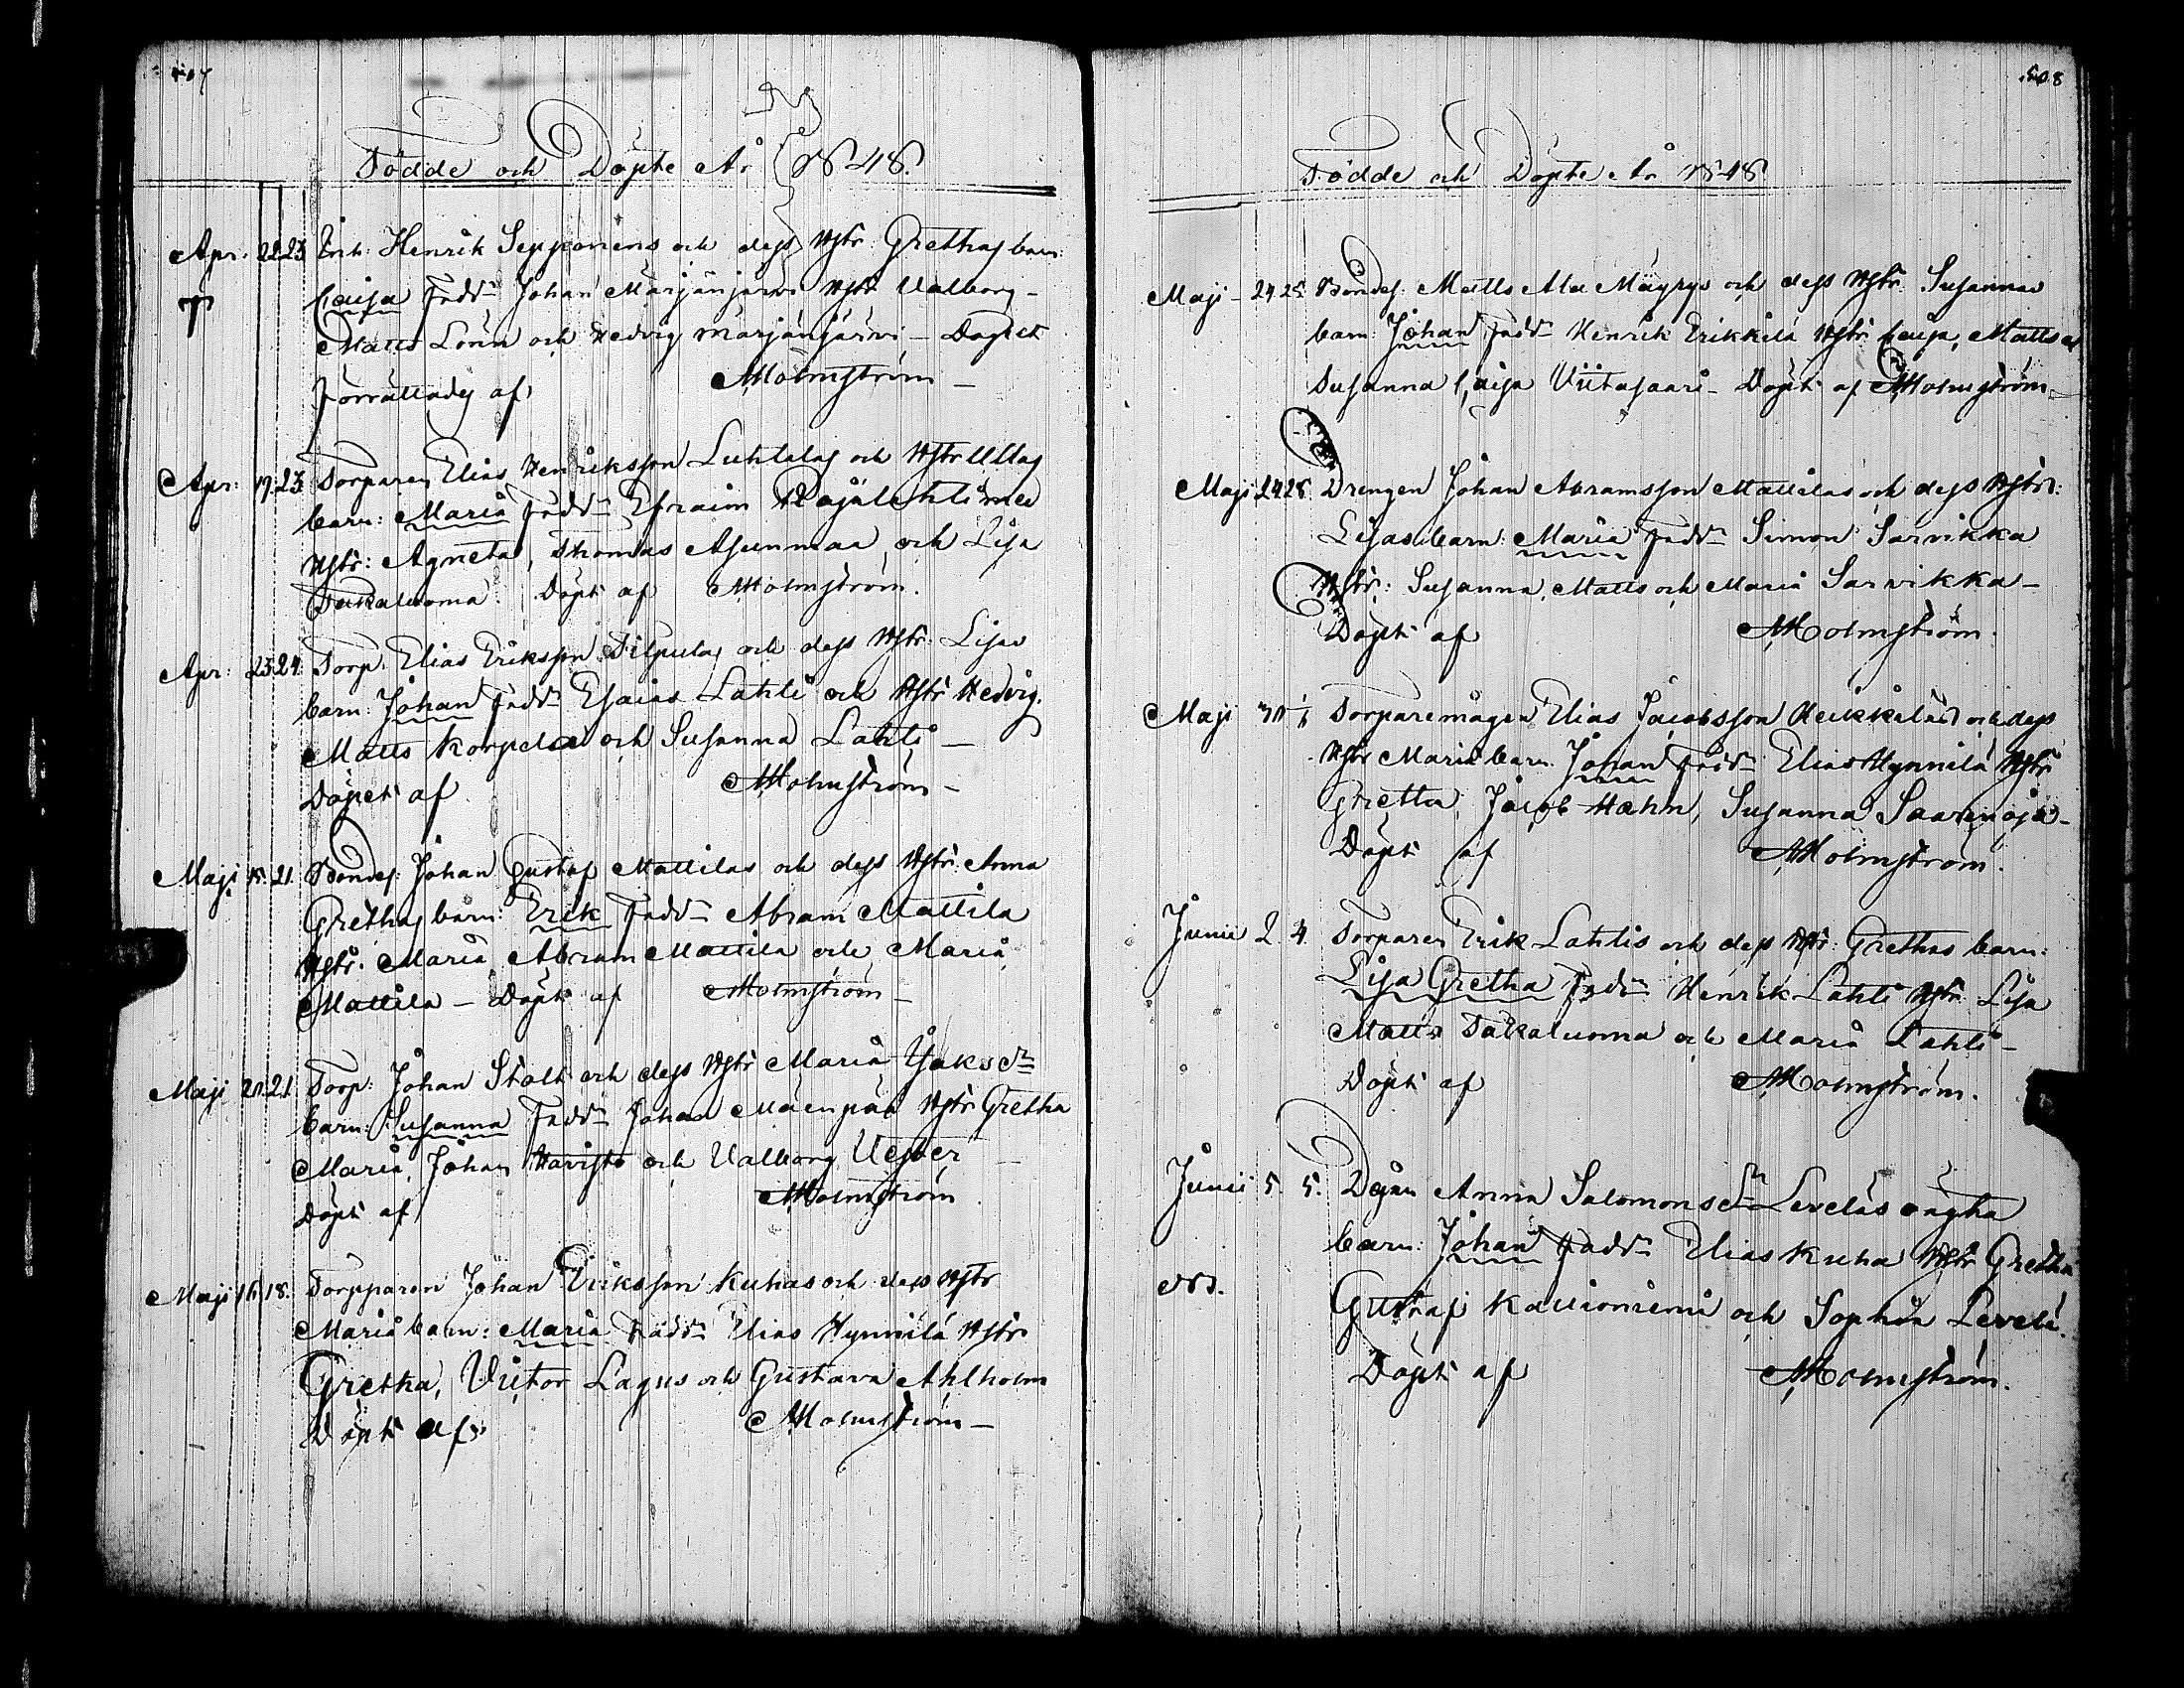 Födde och Döpte År 1848.
Apr. 22 23 Inh: Henrik Sepponens och dess Hstr: Grethas barn:
Caisa Fadd: Johan Marjanjärvi Hstr Valborg -
Matts Lönn och Hedvig Marjanjärvi - Dopet
förrättades af MHolmström -
Apr: 19. 23. Torparen Elias Henriksson Luhtalas och Hstr Ullas
barn: Maria Fadd: Efraim med
Hstr: Agneta, Thomas Asunmaa, och Lisa
Takaluoma. Döpt af MHolmström.
Apr: 23. 24. Torp. Elias Eriksson Tilpulas och dess Hstr: Lisas
barn: Johan Fadd: Esaias Lahti och Hstr Hedvig.
Matts Korpela och Susanna Lahti -
Döpt af MHolmström -
Maji 15. 21. Bondes: Johan Gustaf Mattilas och dess Hstr: Anna
Grethas barn: Erik Fadd: Abram Mattila
Hstr: Maria, Abram Mattila och Maria
Mattila - Döpt af MHolmström -
Maji 20. 21. Torp: Johan Stolt och dess Hstr Maria
barn: Susanna Fadd: Johan Mäenpää Hstr Gretha
Maria, Johan Havisto och Valborg
Döpt af MHolmström
Maji 16. 18. Torpparen Johan Eriksson Kuhas och dess Hstr
Maria barn: Maria Fadd: Elias Hynnilä Hstr
Gretha, Victor Lagus och Gustava Ahlholm
Döpt af MHolmström -
508
Födde och Döpte År 1848
Maji - 24 25. Bondes: Matts Ala Mäyrys och dess Hstr: Susannas
barn: Johan Fadd: Henrik Erikkilä Hstr Caisa, Matts
Susanna Caisa Viitasaari - Döpt af MHolmström -
Maji 24 28. Drengen Johan Abramsson Mattilas och dess Hstr:
Lisas barn: Maria Fadd: Simon Sarvikka
Hstr: Susanna, Matts och Maria Sarvikka -
Döpt af MHolmström.
Maji Torparemågen Elias Jacobsson Heikkiläs och dess
Hstr Maria barn: Johan Fadd: Elias Hynnilä Hstr
Gretha, Jacob Hahn, Susanna Saarenoja -
Döpt af MHolmström.
Junii 2. 4. Torparen Erik Lahtis och dess Hstr: Grethas barn:
Lisa Gretha Fadd: Henrik Lahti Hstr Lisa
Matts Takaluoma och Maria Lahti -
Döpt af MHolmström.
Junii 5. 5. Anna Salomons Dr Leveläs oägta
barn: Johan Fadd: Elias Kuha Hstr Gretha
Gustaf Kallioniemi och Sophia Levelä.
Döpt af MHolmström.